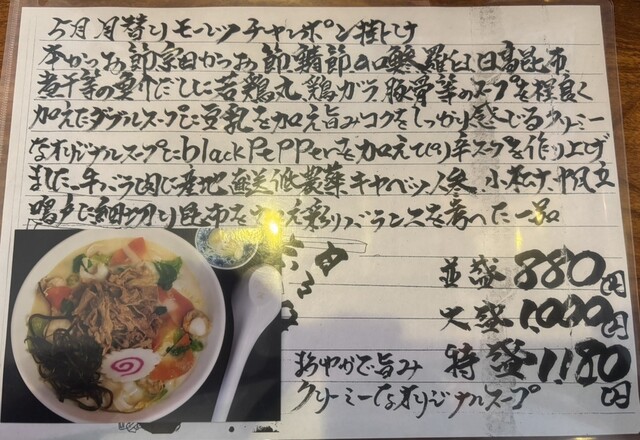 5月月替り モーレツチャンポン掛け
本かつお節宗田かつお節鯖節 日高昆布
煮干等の だしに若鶏丸、鶏ガラ、豚骨等のスープを程良く
加えたダブルスープに豆乳を加え旨みコクをしっかり感じるクリーミー
なオリジナルスープにblack PePPerを加えて 辛スープを作り上げ
ました。牛バラ肉に産地 低農薬キャベツ人参、小松 帆立
鳴戸に細切り昆布を 彩りバランスを考へた一品
並盛 880円
大盛 1,000円
特盛 1,180円
おやかで旨み
クリーミーなオリジナルスープ